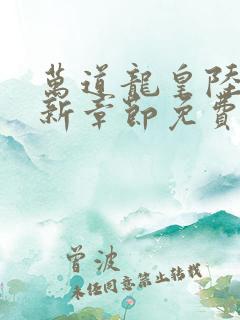 萬道龍皇陸
新章節免費
曾波
未經同意禁止轉載